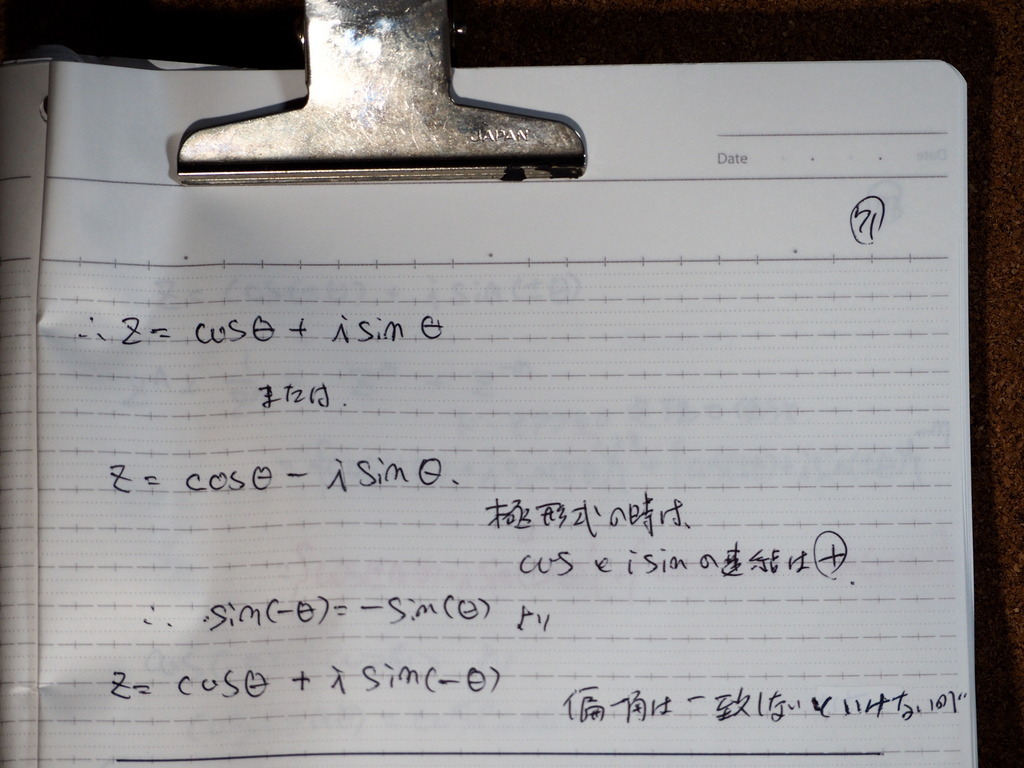 JAPAN
Date
∴ z = cosθ + i sin θ
または.
z = cosθ − i sinθ.
極形式の時は、
cos と i sin の連結は ⊕.
∴ sin(-θ) = −sin(θ) より
z = cosθ + i sin(−θ)
偏角は一致しないといけない